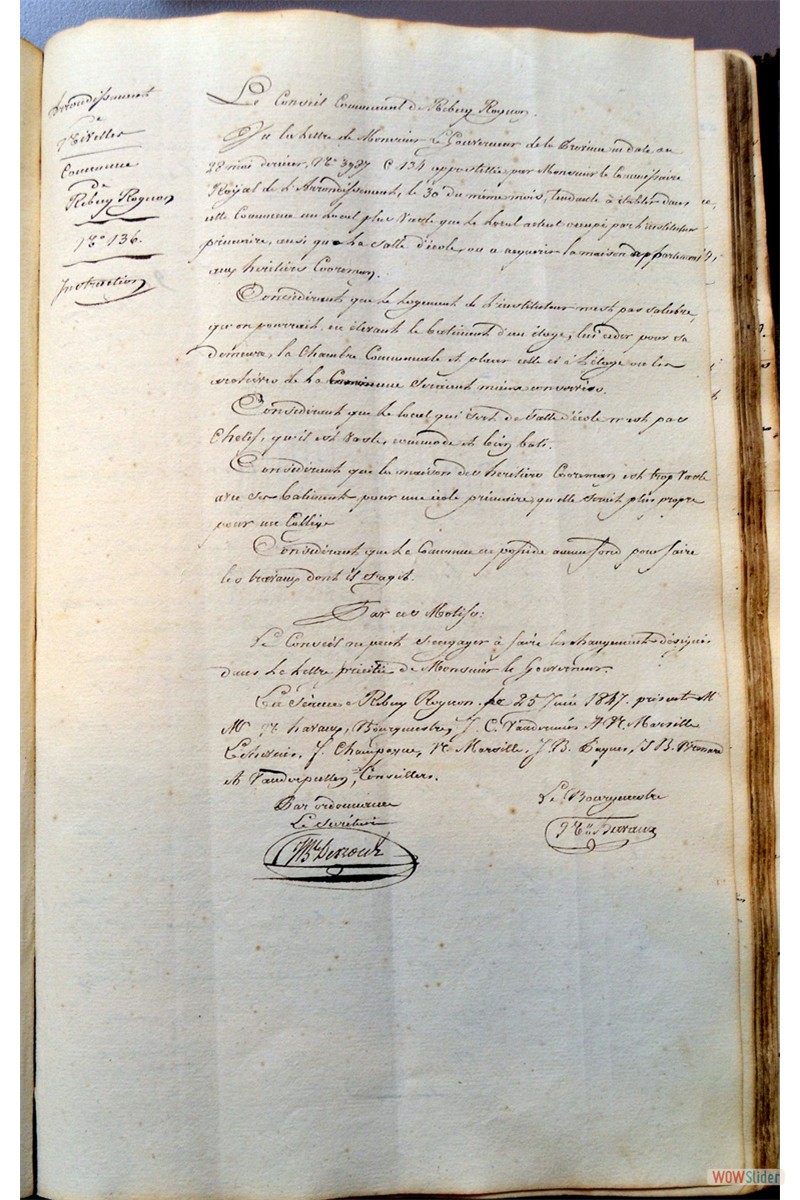 Arrondissement
de
Nivelles
Commune
de
Rebecq Rognon
N° 136.
Instruction
Le Conseil Communal de Rebecq Rognon.
Vu la lettre de Monsieur le Gouverneur de la Province en date du
28 mai dernier, N° 3987 C 134 appostillée par Monsieur le Commissaire
Royal de l'Arrondissement, le 30 du même mois, tendante à établir dans
cette Commune un local plus vaste que le local actuel occupé par l'instituteur
primaire, ainsi que la salle d'école, ou a acquérir la maison appartenant
aux heritiers Cooreman.
Considérant que le logement de l'instituteur n'est pas salubre,
qu'on pourrait, en élevant le batiment d'un étage, lui céder pour sa
demeure, la Chambre Communale et placer celle ci à l'étage où les
archives de la Commune seraient mieux conservées.
Considérant que le local qui sert de salle d'école n'est pas
chetif, qu'il est vaste, commode et bien bati.
Considérant que la maison des heritiers Cooreman est trop vaste
avec ses batiments pour une école primaire, qu'elle serait plus propre
pour un Collège
Considérant que la Commune ne possède aucun fond pour faire
les travaux dont il s'agit.
Par ces Motifs:
Le Conseil ne peut s'engager à faire les changements désignés
dans la lettre précitée de Monsieur le Gouverneur.
En Séance à Rebecq Rognon, le 25 Juin 1847. présents M
M. N. havaux, Bourgmestre, J. C. A. N. Marsille
Echevins, J. Champagne, N. Marsille, J. B. J. B.
et Vanderputten, Conseillers.
Par ordonnance
Le Bourgmestre
Le Secrétaire
Havaux
WOWSlider